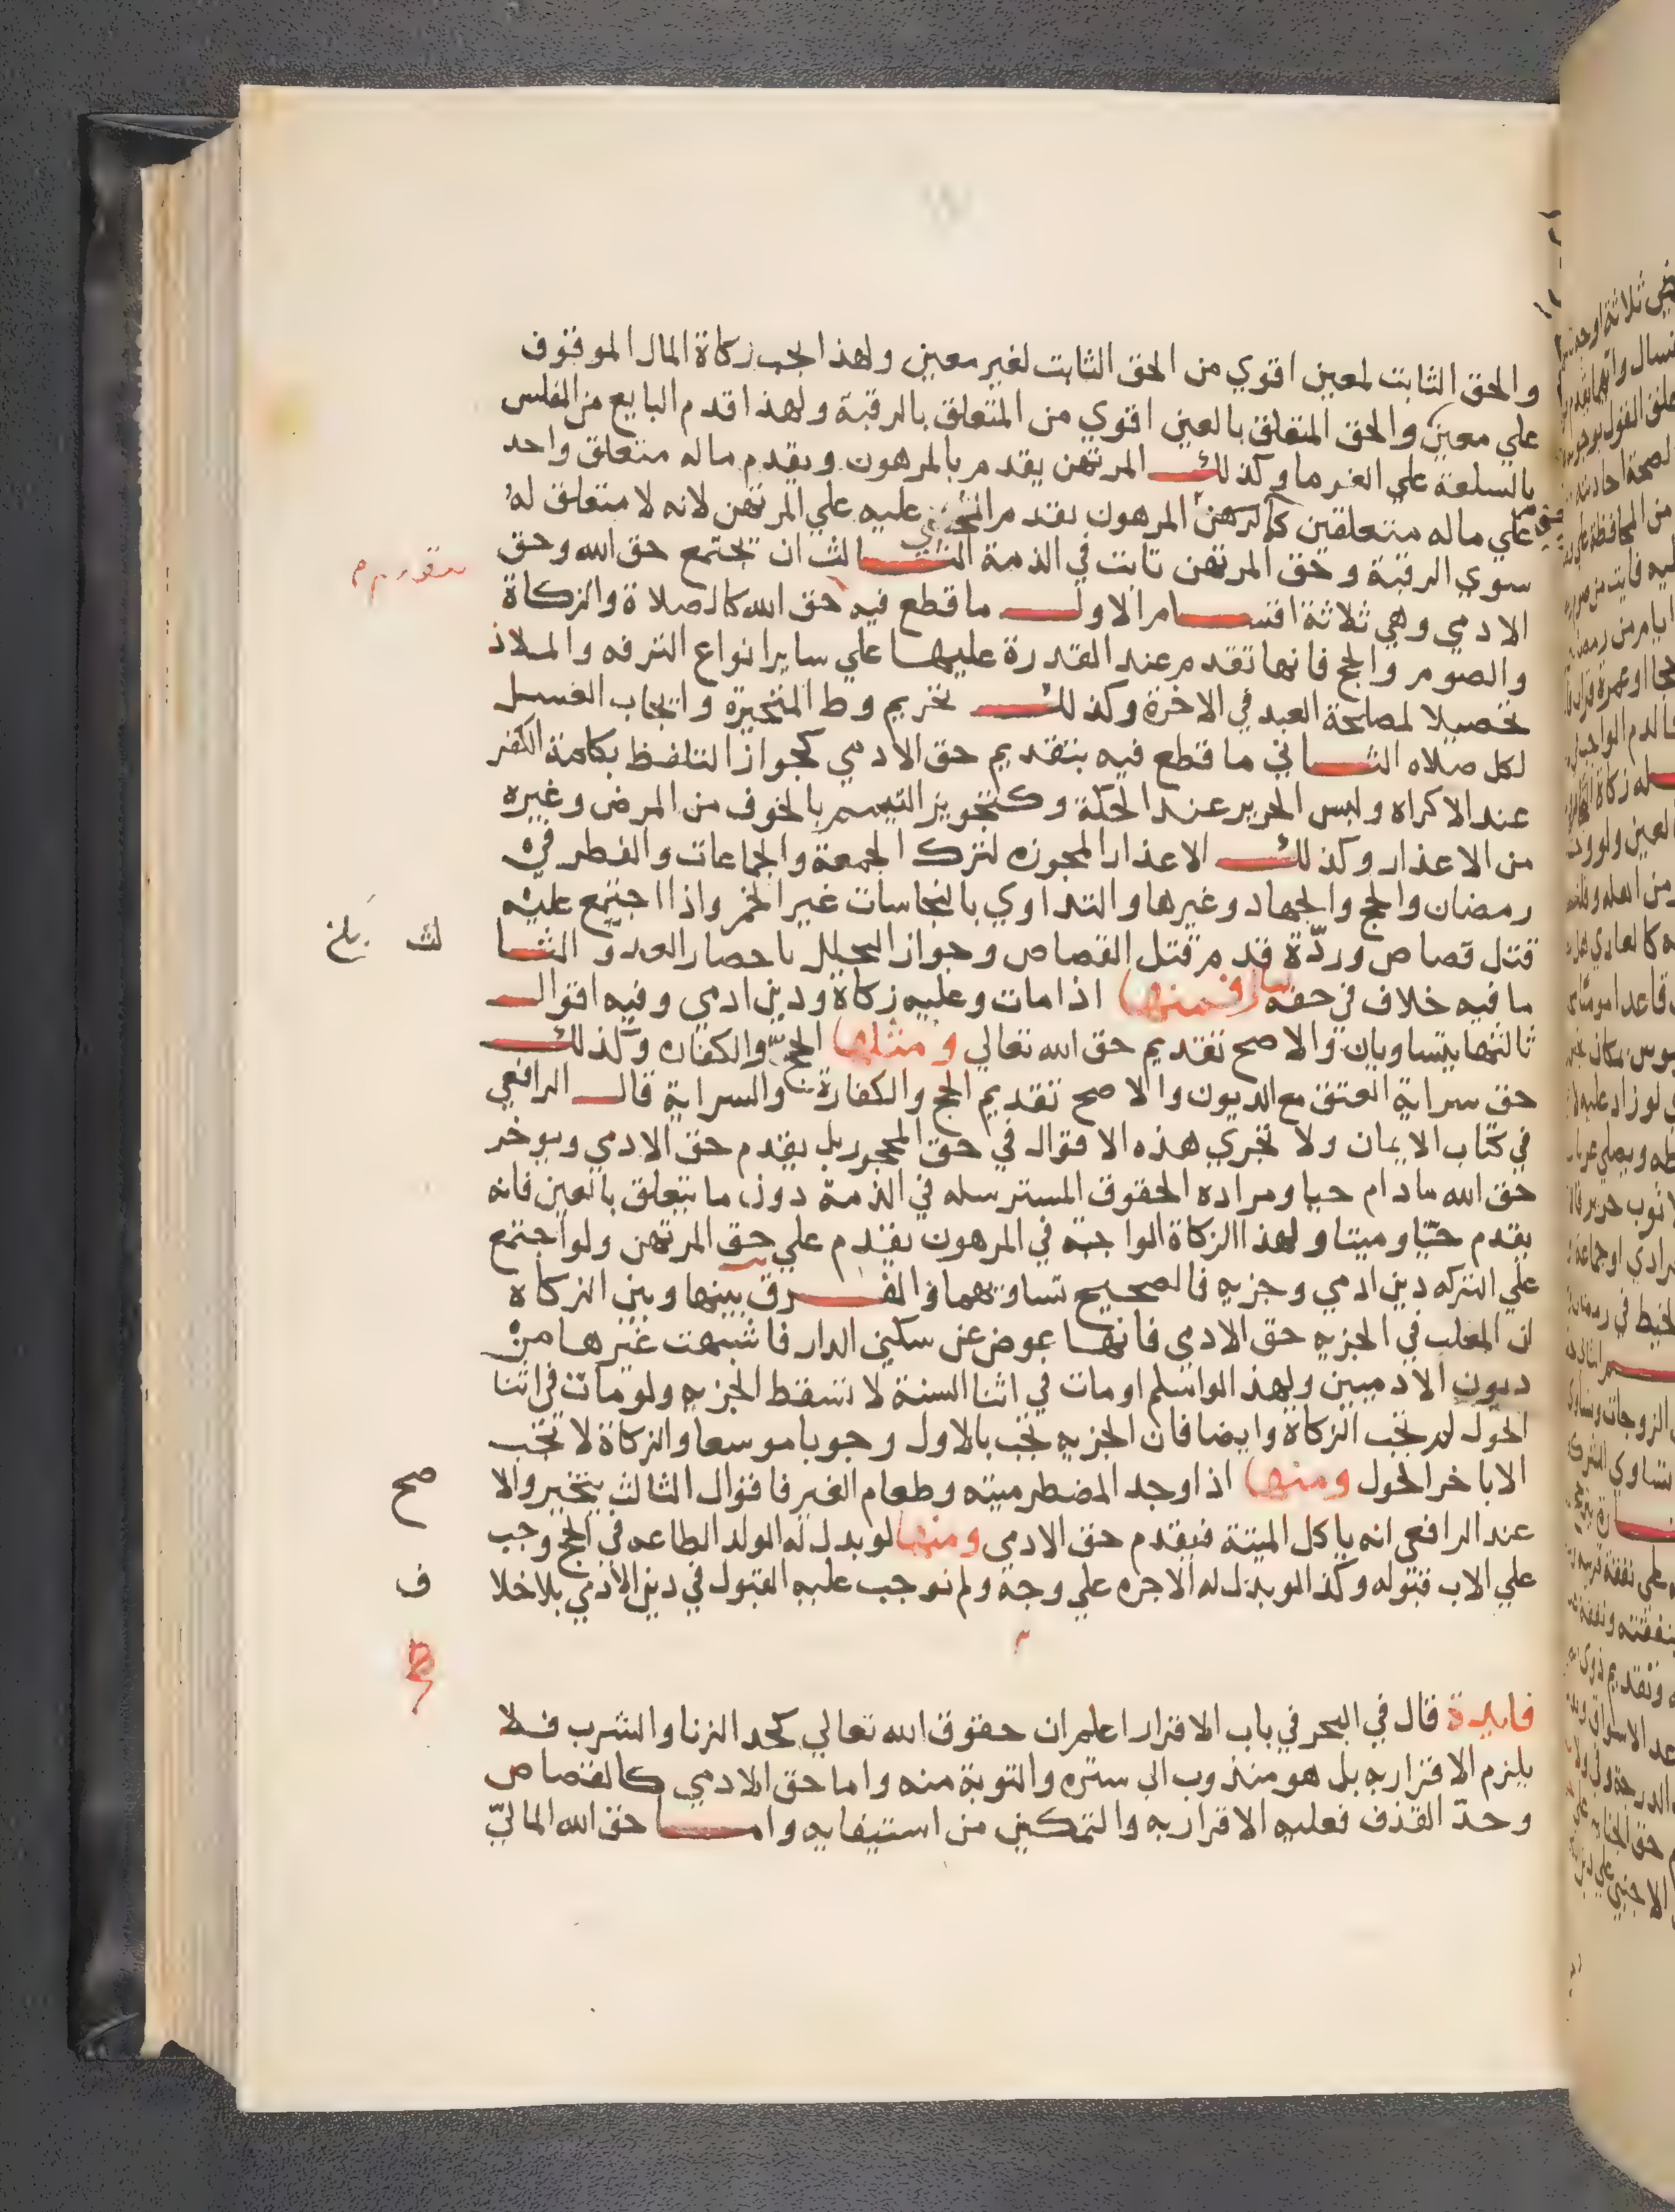 والحق الثابت لمعين اقوي من الحق الثابت لغير معين ولهذا تجب زكاة المال الموقوف
علي معين والحق المتعلق بالعين اقوي من المتعلق بالرقبة ولهذا قدم البايع من المفلس
بالسلعة علي الغرما وكذلك المرتهن يقدم بالمرهون ويقدم ماله متعلق واحد
علي ماله متعلقين كالرهن المرهون يقدم المجني عليه علي المرتهن لانه لا متعلق له
سوي الرقبة وحق المرتهن ثابت في الذمة الثالث ان يجتمع حق الله وحق
الادمي وهي ثلاثة اقسام الاول ما قطع فيه حق الله كالصلاة والزكاة
والصوم والحج فانها تقدم عند القدرة عليها علي ساير انواع الترفه والملاذ
تحصيلا لمصلحة العبد في الاخرة وكذلك تحريم وط المتحيرة وايجاب الغسل
لكل صلاه الثاني ما قطع فيه بتقديم حق الادمي كجواز التلفظ بكلمة الكفر
عند الاكراه ولبس الحرير عند الحكة وكتجويز التيمم بالخوف من المرض وغيره
من الاعذار وكذلك الاعذار المجوزه لترك الجمعة والجماعات والفطر في
رمضان والحج والجهاد وغيرها والتداوي بالنجاسات غير الخمر واذا اجتمع عليه
قتل قصاص وردّة قدم قتل القصاص وجواز التحلل باحصار العدو الثا
لث
ما فيه خلاف فمنها اذا مات وعليه زكاة ودين ادمي وفيه اقوال
ثالثها يتساويان والاصح تقديم حق الله تعالي ومثلها الحج والكفاره وكذلك
حق سراية العتق مع الديون والاصح تقديم الحج والكفارة والسراية قال الرافعي
في كتاب الايمان ولا تجري هذه الاقوال في حق المحجور بل يقدم حق الادمي ويوخر
حق الله مادام حيا ومراده الحقوق المسترسله في الذمة دون ما يتعلق بالعين فانه
يقدم حيّا وميتا ولهذا الزكاة الواجبة في المرهون يقدم علي حق المرتهن ولو اجتمع
علي التركه دين ادمي وجزيه فالصحيح تساويهما والفرق بينها وبين الزكاة
ان المغلب في الجزيه حق الادمي فانها عوض عن سكني الدار فاشبهت غيرها من
ديون الادميين ولهذا لو اسلم او مات في اثنا السنة لا تسقط الجزيه ولو مات في اثنا
الحول لم تجب الزكاة وايضا فان الجزيه تجب بالاول وجوبا موسعا والزكاة لا تجب
الا باخر الحول ومنها اذا وجد المضطر ميته وطعام الغير فاقوال الثالث يتخير والا
صح
عند الرافعي انه ياكل الميتة فيقدم حق الادمي ومنها لو بدل له الولد الطاعه في الحج وجب
علي الاب قبوله وكذا لو بذل له الاجره علي وجة ولم نوجب عليه القبول في دين الادمي بلا خلا
ف
فايدة قال في البحر في باب الاقرار اعلم ان حقوق الله تعالي كحد الزنا والشرب فلا
يلزم الاقرار به بل هو مندوب الي ستره والتوبة منه واما حق الادمي كالقصاص
وحدّ القذف فعليه الاقرار به والتمكين من استيفايه واما حق الله الماليّ